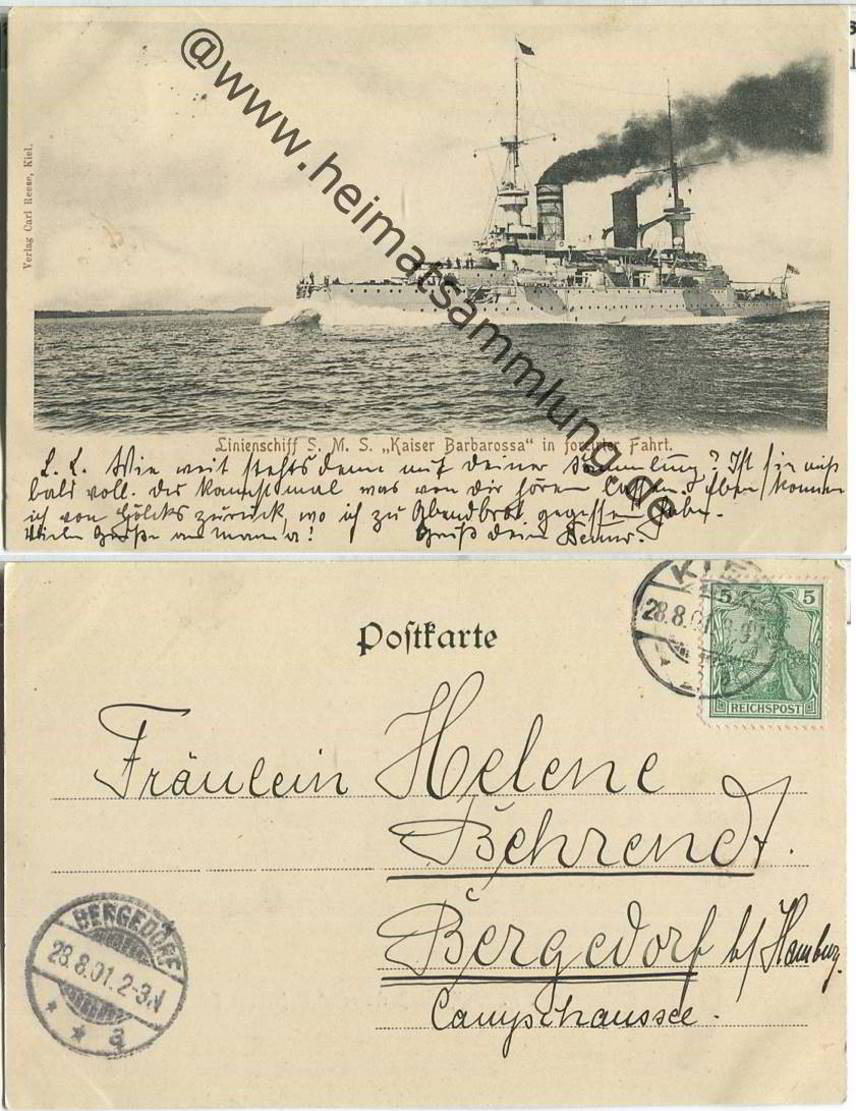 @www.heimatsammlung.de
Verlag Carl Reese, Kiel.
Linienschiff S. M. S. „Kaiser Barbarossa“ in forcirter Fahrt.
L. L. Wie weit stehts denn mit deiner Sammlung? Ist sie nicht
bald voll. du kannst mal was von dir hören lassen. Eben kommen
ich von zurück, wo ich zu Abendbrot gegessen habe.
Viele Grüße an Mama! Gruß dein
Postkarte
KIEL
28.8.01.
5 5
REICHSPOST
Fräulein Helene
Behrendt.
Bergedorf b/ Hamburg.
Campschaussee.
BERGEDORF
28.8.01.2-3N
* * a